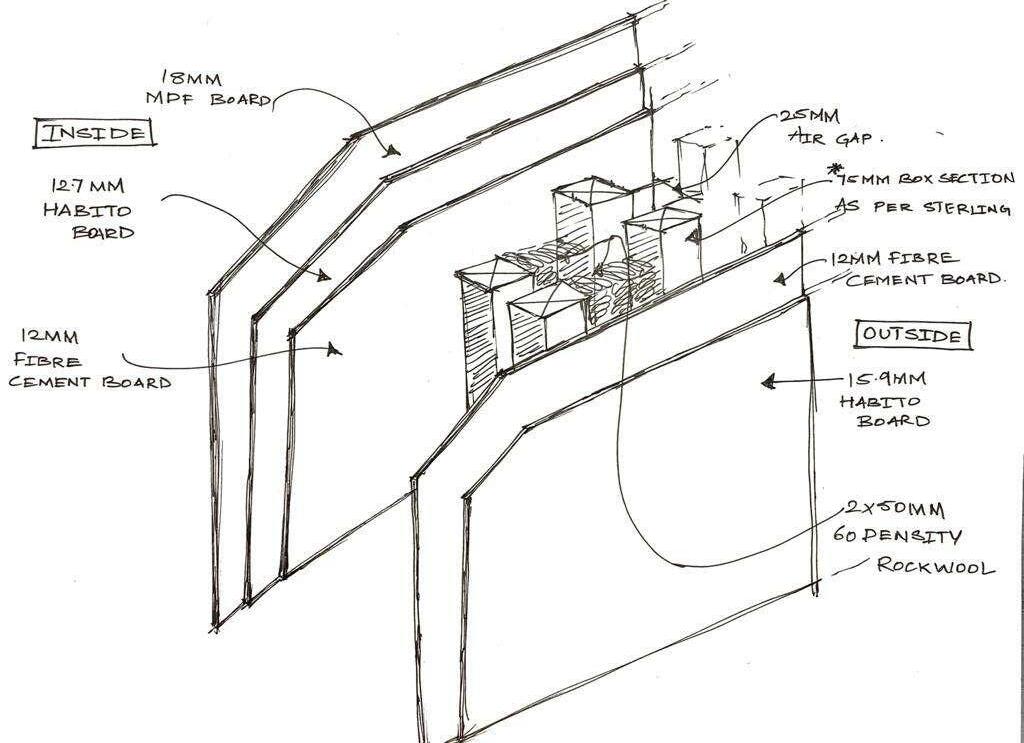 18MM
MDF BOARD
INSIDE
127 MM
HABITO
BOARD
12MM
FIBRE
CEMENT BOARD
25MM
AIR GAP.
*75MM BOX SECTION
AS PER STERLING
12MM FIBRE
CEMENT BOARD.
OUTSIDE
15.9MM
HABITO
BOARD
2X50MM
60 DENSITY
ROCKWOOL